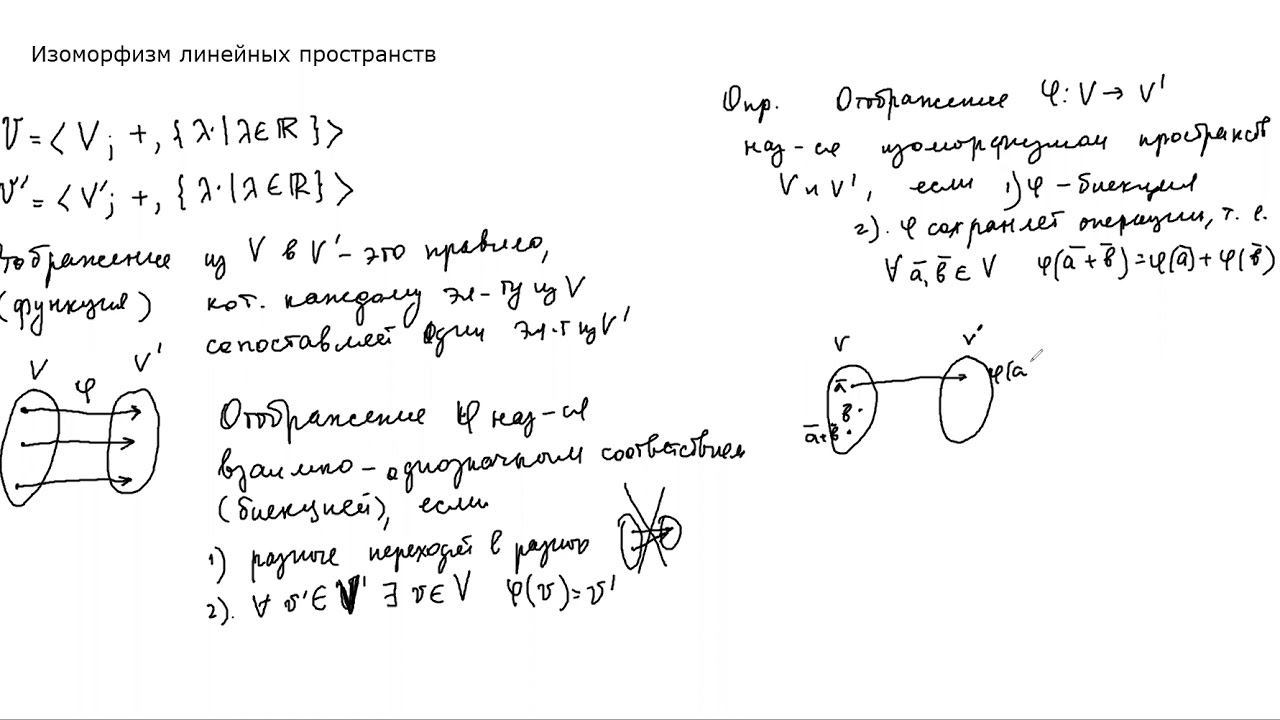 Изоморфизм линейных пространств
V = < V ; +, { λ· | λ ∈ ℝ } >
V' = < V' ; +, { λ· | λ ∈ ℝ } >
Отображение из V в V' – это правило,
(функция) кот. каждому эл-ту из V
сопоставляет один эл-т из V'
V φ V'
Отображение φ наз-ся
взаимно-однозначным соответствием
(биекцией), если
1) разные переходят в разные
2). ∀ v' ∈ V' ∃ v ∈ V φ(v) = v'
Опр. Отображение φ: V → V'
наз-ся изоморфизмом пространств
V и V', если 1) φ – биекция
2). φ сохраняет операции, т. е.
∀ a̅, b̅ ∈ V φ(a̅ + b̅) = φ(a̅) + φ(b̅)
V V'
a̅ φ(a
b̅
a̅+b̅